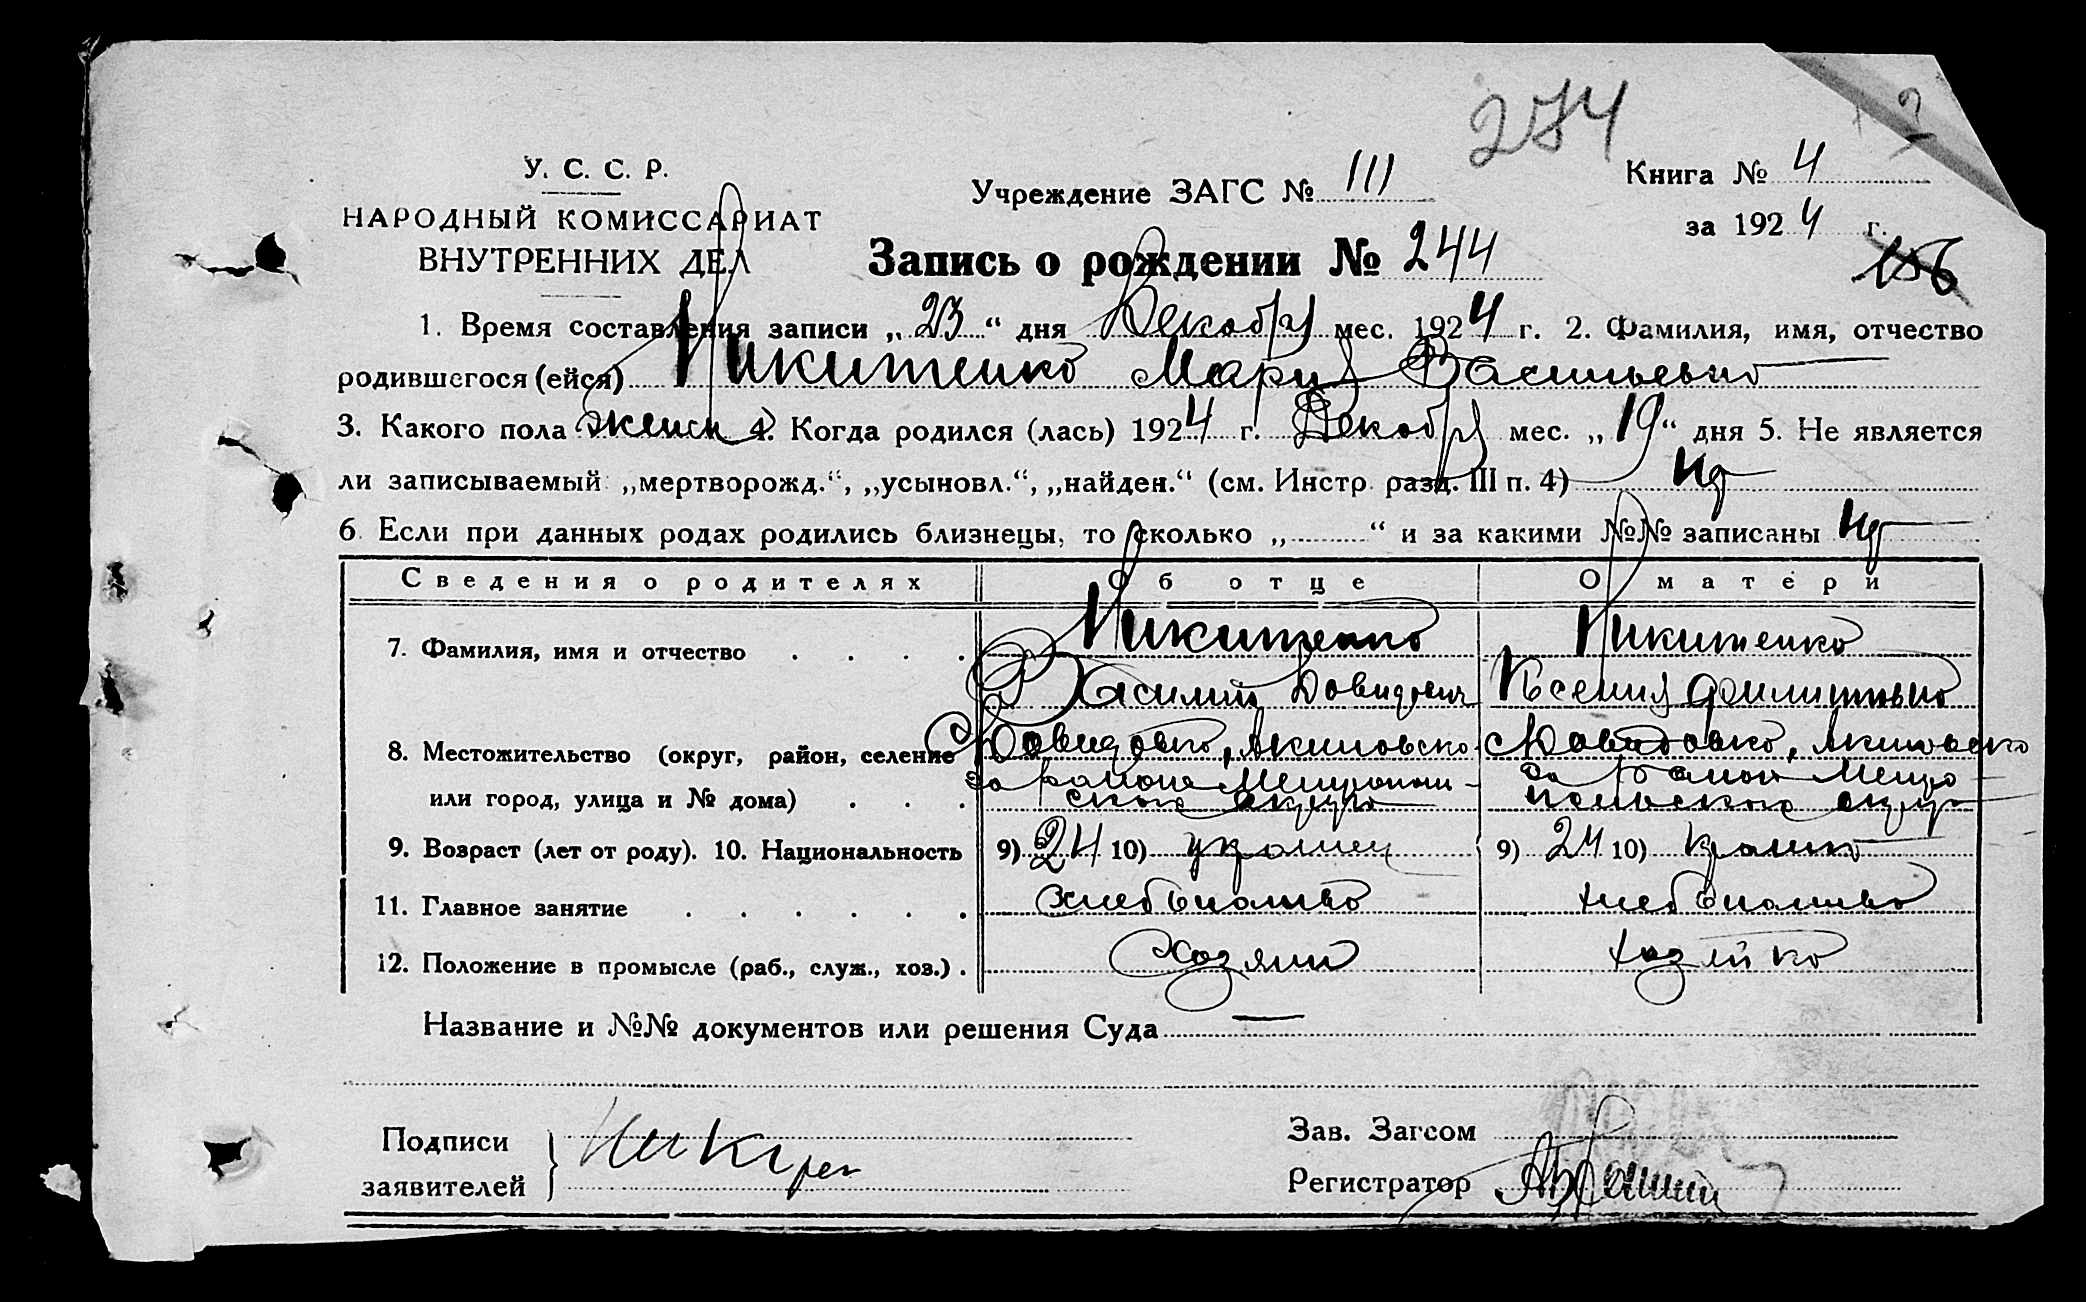 274
2
У. С. С. Р.
Учреждение ЗАГС № 111
Книга № 4
НАРОДНЫЙ КОМИССАРИАТ
за 1924 г.
ВНУТРЕННИХ ДЕЛ
Запись о рождении № 244
156
1. Время составления записи „ 23 “ дня Декабря мес. 1924 г. 2. Фамилия, имя, отчество
родившегося (ейся) Никитенко Мария Васильевно
3. Какого пола женск 4. Когда родился (лась) 1924 г. Декабря мес. „ 19 “ дня 5. Не является
ли записываемый „мертворожд.“, „усыновл.“, „найден.“ (см. Инстр. разд. III п. 4)
6. Если при данных родах родились близнецы, то сколько „ “ и за какими №№ записаны
Сведения о родителях Об отце О матери
7. Фамилия, имя и отчество . . . . Никитенко Никитенко
Василий Давидович Ксения
8. Местожительство (округ, район, селение Давидовко, Акимовско Давидовко, Акимовско
го района Мелитополь- го района Мелито
или город, улица и № дома) . . . ского округа польского округа
9. Возраст (лет от роду). 10. Национальность 9) 24 10) украинец 9) 24 10)
11. Главное занятие . . . . . . хлебопашество хлебопашество
12. Положение в промысле (раб., служ., хоз.) . хозяин хозяйко
Название и №№ документов или решения Суда —
Подписи
заявителей
Зав. Загсом
Регистратор